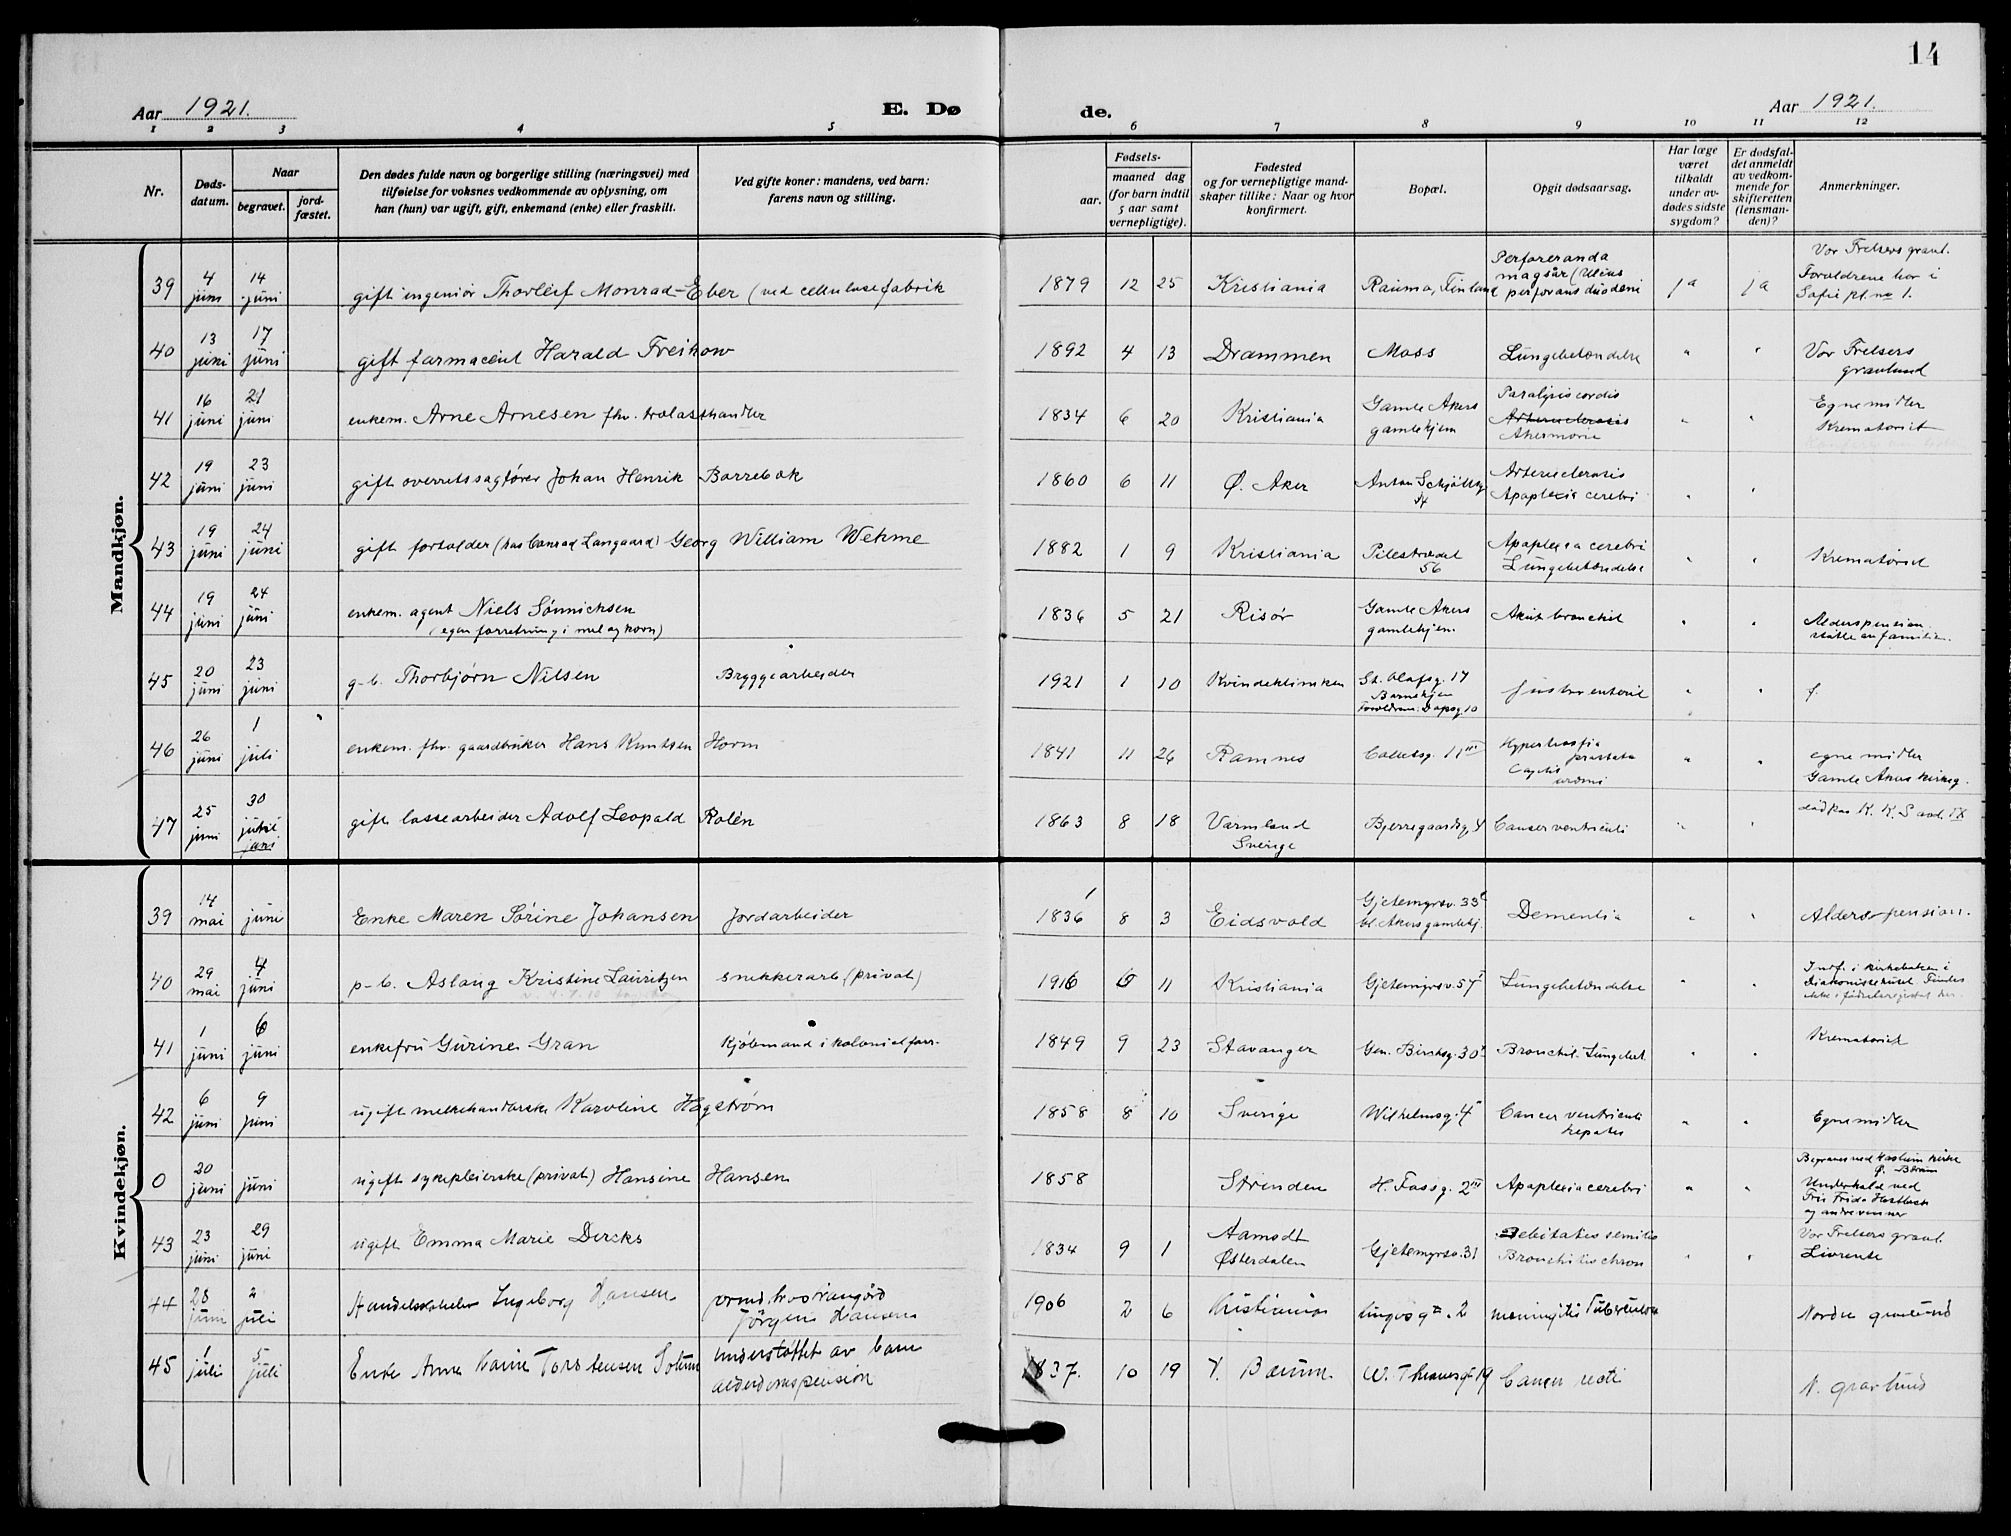 14
Aar 1921.
E. Dø
de.
Aar 1921.
1 2 3 4 5 6 7 8 9 10 11 12
Nr.
Døds-
datum.
Naar
begravet.
jord-
fæstet.
Den dødes fulde navn og borgerlige stilling (næringsvei) med
tilføielse for voksnes vedkommende av oplysning, om
han (hun) var ugift, gift, enkemand (enke) eller fraskilt.
Ved gifte koner: mandens, ved barn:
farens navn og stilling.
Fødsels-
aar.
maaned dag
(for barn indtil
5 aar samt
vernepligtige).
Fødested
og for vernepligtige mand-
skaper tillike: Naar og hvor
konfirmert.
Bopæl.
Opgit dødsaarsag.
Har læge
været
tilkaldt
under av-
dødes sidste
sygdom?
Er dødsfal-
det anmeldt
av vedkom-
mende for
skifteretten
(lensman-
den)?
Anmerkninger.
Mandkjøn.
39 4 juni 14 juni gift ingeniør Thorleif Monrad-Eber (ved cellulosefabrik 1879 12 25 Kristiania Rauma, Finland
Perforeranda
magsår (Ulcus
perforans duodeni
ja ja
Vor Frelsers gravl.
Forældrene bor i
Sofie pl. no 1.
40 13 juni 17 juni gift farmaceut Harald Freihow 1892 4 13 Drammen Moss Lungebetændelse " "
Vor Frelsers
gravlund
41 16 juni 21 juni enkem. Arne Arnesen fhv. trælasthandler 1834 6 20 Kristiania
Gamle Akers
gamlehjem
Paralysis cordis
" "
Egne midler
Krematoriet
42 19 juni 23 juni gift overretssagfører Johan Henrik Barrebæk 1860 6 11 Ø. Aker
Anton Schjøttsg.
Arteriesclerosis
Apoplexia cerebri
" "
43 19 juni 24 juni gift forvalder (hos Conrad Langaard) Georg William Wehme 1882 1 9 Kristiania
Pilestrædet
56
Apoplexia cerebri
Lungebetændelse
" "
Krematoriet
44 19 juni 24 juni enkem. agent Niels Sønnichsen
(egen forretning i mel og korn)
1836 5 21 Risør
Gamle Akers
gamlehjem
Akut bronchit " "
Alderspension
støtte av familien.
45 20 juni 23 juni g-b. Thorbjørn Nilsen Bryggearbeider 1921 1 10 Kvindeklinikken
St. Olafsg. 17
Barnehjem
Forældrene: Dapsg. 10
" "
f.
46 26 juni 1 juli enkem. fhv. gaardbruker Hans Knutsen Horm 1841 11 26 Ramnes Colletsg. 11 III
Hypertrofia
prostata
" "
egne midler
Gamle Akers kirkeg.
47 25 juni 30 juni gift lossearbeider Adolf Leopold Rolén 1863 8 18
Varmland
Sverige
Bjerregaardsg. 4 Cancer ventriculi " "
død paa K. K. S avd. IX
Kvindekjøn.
39 14 mai juni Enke Maren Sørine Johansen Jordarbeider 1836 8 3 Eidsvold
Gjetemyrsv. 33
Gl. Akers gamlehj.
Dementia " "
Alderspension.
40 29 mai 4 juni p-b. Aslaug Kristine Lauritzen snekkerarb (privat) 1916 6 11 Kristiania Gjetemyrsv. 57 Lungebetændelse " "
Indf. i kirkeboken i
Diakonissehuset. Findes
ikke i fødselsregistret her.
41 1 juni 6 juni enkefru Gurine Gran Kjøbmand i kolonialforr. 1849 9 23 Stavanger Gen. Birchsg. 30 Bronchit. Lungebet. " "
Krematoriet
42 6 juni 9 juni ugift melkehandlerske Karoline Hagstrøm 1858 8 10 Sverige Wilhelmsg. 4
Cancer ventriculi
hepatis
" "
Egne midler
0 20 juni juni ugift sykepleierske (privat) Hansine Hansen 1858 Strinden H. Fossg. 2 III Apoplexia cerebri " "
Begraves ved Haslum kirke
Ø. Bærum
Underhold ved
Frk Frida
og andre venner
43 23 juni 29 juni ugift Emma Marie Dercks 1834 9 1
Aamodt
Østerdalen
Gjetemyrsv. 31
Debilitatis senilis
Bronchitis chron
" "
Vor Frelsers gravl.
Livrente
44 28 juni 2 juli Handelsskoleelev Ingeborg Hansen
Jörgen Hansen
1906 2 6 Kristiania 2 meningitis Tuberculosa
Nordre gravlund
45 1 juli 5 juli Enke Anne Karine Torstensen Solum
understøttet av barn
alderdomspension
1837. 10 19 V. Bærum W. Thranesgt 19 Cancer recti
N. gravlund